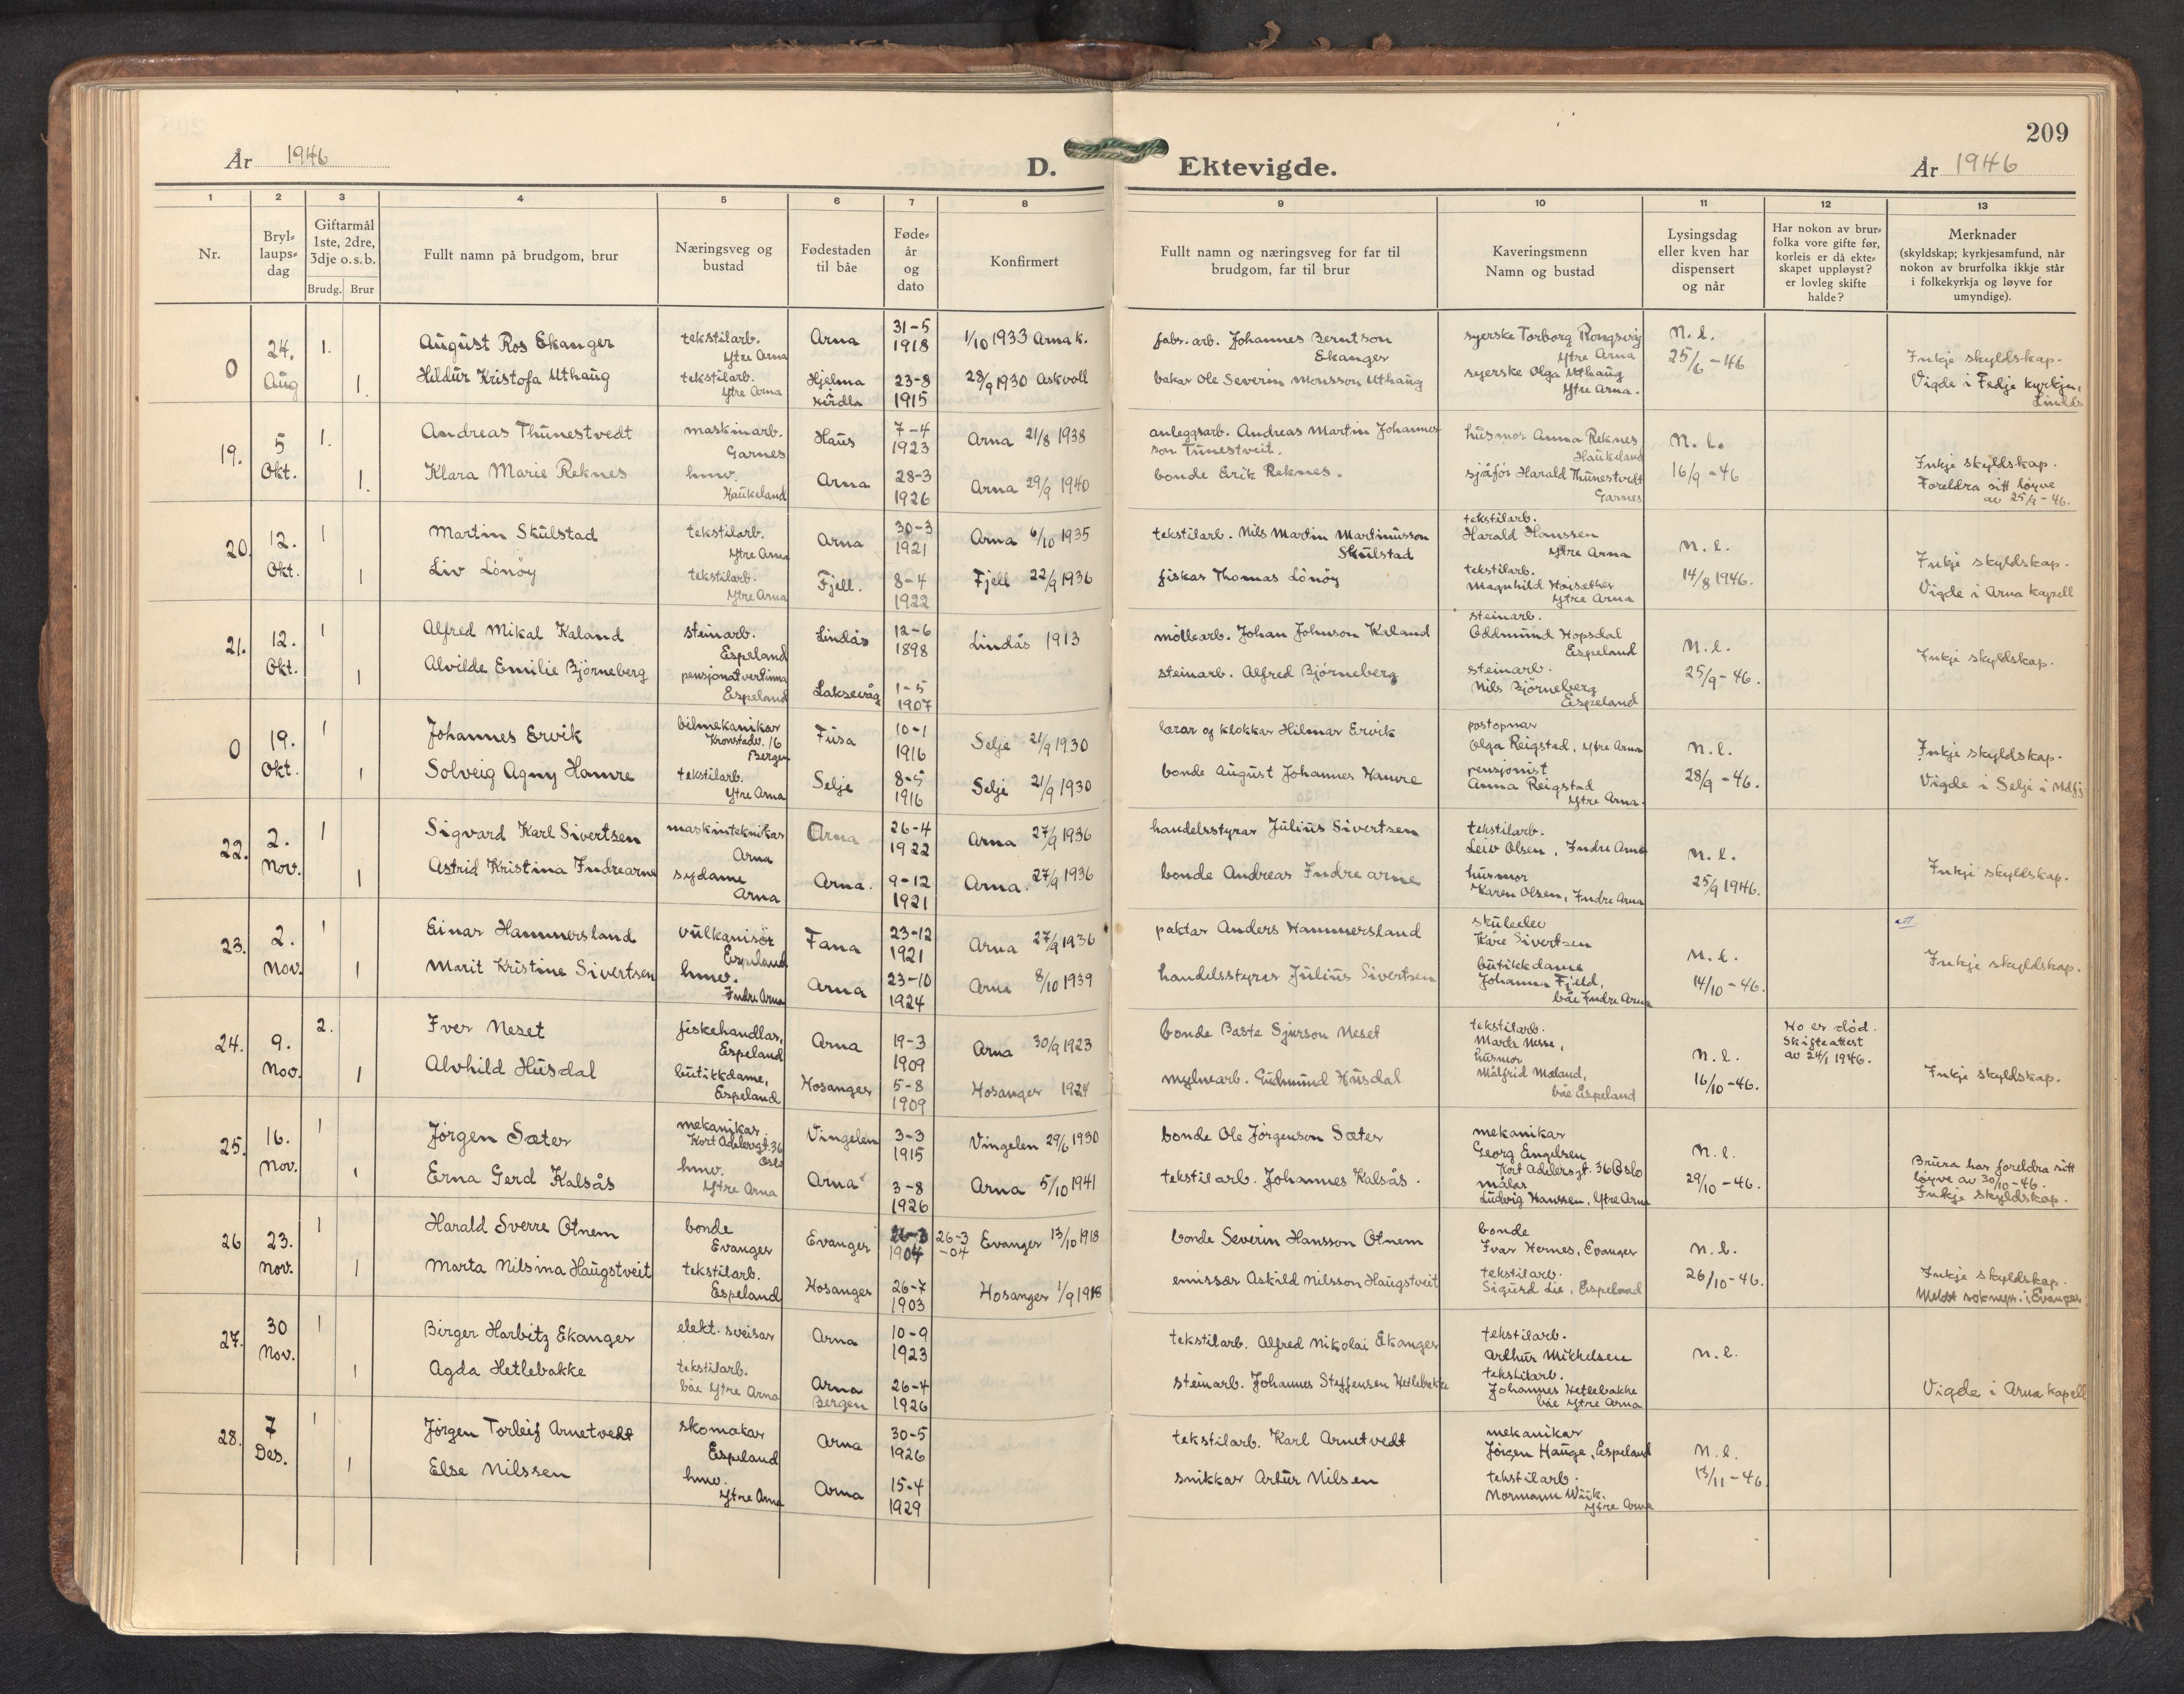 209
År 1946
D. Ektevigde.
År 1946
1 2 3 4 5 6 7 8 9 10 11 12 13
Nr.
Bryl-
laups-
dag
Giftarmål
1ste, 2dre,
3dje o.s.b.
Brudg. Brur
Fullt namn på brudgom, brur
Næringsveg og
bustad
Fødestaden
til båe
Føde-
år
og
dato
Konfirmert
Fullt namn og næringsveg for far til
brudgom, far til brur
Kaveringsmenn
Namn og bustad
Lysingsdag
eller kven har
dispensert
og når
Har nokon av brur-
folka vore gifte før,
korleis er då ekte-
skapet uppløyst?
er lovleg skifte
halde?
Merknader
(skyldskap; kyrkjesamfund, når
nokon av brurfolka ikkje står
i folkekyrkja og løyve for
umyndige).
0
24.
Aug
1.
August Ros Ekanger
tekstilarb.
Ytre Arna
Arna
31-5
1918
1/10 1933 Arna k.
fabr. arb. Johannes Berntson
Ekanger
syerske Torborg
Ytre Arna
N. l.
25/6 -46
1.
Hildur Kristofa Uthaug
tekstilarb.
Ytre Arna
Hjelma
Herdla
23-8
1915
28/9 1930 Askvoll
bakar Ole Severin Monsson Uthaug
syerske Olga Uthaug
Ytre Arna.
Inkje skyldskap.
Vigde i Fedje kyrkje,
Lindås
19.
5
Okt.
1.
Andreas Thunestvedt
maskinarb.
Garnes
Haus
7-4
1923
Arna 21/8 1938
anleggsarb. Andreas Martin Johannes-
son Tunestveit.
husmor Anna Reknes
Haukeland
N. l.
16/9 -46
1.
Klara Marie Reknes
hmv.
Haukeland
Arna
28-3
1926
Arna 29/9 1940
bonde Erik Reknes.
sjåfør Harald Thunestvedt
Garnes
Inkje skyldskap.
Foreldra sitt løyve
av 25/9 -46.
20.
12.
Okt.
1
Martin Skulstad
tekstilarb.
Ytre Arna
Arna
30-3
1921
Arna 6/10 1935
tekstilarb. Nils Martin Martinusson
Skulstad
tekstilarb.
Harald Hanssen
Ytre Arna
N. l.
14/8 1946.
1
Liv Lönöy
tekstilarb.
Ytre Arna
Fjell.
8-4
1922
Fjell 22/9 1936
fiskar Thomas Lönöy
tekstilarb.
Magnhild Høisæther
Ytre Arna
Inkje skyldskap.
Vigde i Arna kapell
21.
12.
Okt.
1
Alfred Mikal Kaland
steinarb.
Espeland
Lindås
12-6
1898
Lindås 1913
möllearb. Johan Johnson Kaland
steinarb.
Oddmund Hopsdal
Espeland
N. l.
25/9 -46.
1
Alvilde Emilie Björneberg
pensjonatvertinna
Espeland
Laksevåg
1-5
1907
steinarb. Alfred Björneberg
steinarb.
Nils Björneberg
Espeland
Inkje skyldskap.
0
19.
Okt.
1
Johannes Ervik
bilmekanikar
Kronstadv. 16
Bergen
Fusa
10-1
1916
Selje 21/9 1930
lærar og klokkar Hilmar Ervik
postopnar
Olga Reigstad, Ytre Arna
N. l.
28/9 -46.
1
Solveig Agny Hamre
tekstilarb.
Ytre Arna
Selje
8-5
1916
Selje 21/9 1930
bonde August Johannes Hamre
pensjonist
Anna Reigstad
Ytre Arna.
Inkje skyldskap.
Vigde i Selje i Ndfj
22.
2.
Nov.
1
Sigvard Karl Sivertsen
maskinteknikar
Arna
Arna
26-4
1922
Arna 27/9 1936
handelsstyrar Julius Sivertsen
tekstilarb.
Leiv Olsen, Indre Arna
N. l.
25/9 1946.
1
Astrid Kristina Indrearne
sydame
Arna
Arna.
9-12
1921
Arna. 27/9 1936
bonde Andreas Indrearne
husmor
Karen Olsen, Indre Arna
Inkje skyldskap.
23.
2.
Nov.
1
Einar Hammersland
vulkanisör
Espeland
Fana
23-12
1921
Arna 27/9 1936
paktar Anders Hammersland
skuleelev
Kåre Sivertsen
N. l.
14/10 -46.
1
Marit Kristine Sivertsen
hmv.
Indre Arna
Arna
23-10
1924
Arna 8/10 1939
handelsstyrar Julius Sivertsen
butikkdame
Johanna Fjeld,
båe Indre Arna
Inkje skyldskap.
24.
9.
Nov.
2.
Iver Neset
fiskehandlar,
Espeland
Arna
19-3
1909
Arna 30/9 1923
bonde Baste Sjurson Neset
tekstilarb.
Marta Nesse,
N. l.
16/10 -46.
Ho er död.
Skifteattest
av 24/1 1946.
1
Alvhild Husdal
butikkdame,
Espeland
Hosanger
5-8
1909
Hosanger 1924
mylnearb. Gudmund Husdal
husmor
Målfrid Mæland,
båe Espeland
Inkje skyldskap.
25.
16.
Nov.
1
Jörgen Sæter
mekanikar
Kort Adelersgt. 36
Oslo
Vingelen
3-3
1915
Vingelen 29/6 1930
bonde Ole Jörgenson Sæter
mekanikar
Georg Engelsen
Kort Adelersgt. 36 Oslo
N. l.
29/10 -46.
1
Erna Gerd Kalsås
hmv.
Ytre Arna
Arna
3-8
1926
Arna 5/10 1941
tekstilarb. Johannes Kalsås.
målar
Ludvig Hanssen, Ytre Arna
Brura har foreldra sitt
løyve av 30/10 -46.
Inkje skyldskap.
26
23.
Nov.
1
Harald Sverre Otnem
bonde
Evanger
Evanger
26-3
1904
26-3
-04
Evanger 13/10 1918
bonde Severin Hansson Otnem
bonde
Ivar Hernes, Evanger
N. l.
26/10 -46.
1
Marta Nilsina Haugstveit
tekstilarb.
Espeland
Hosanger
26-7
1903
Hosanger 1/9 1918
emissær Askild Nilsson Haugstveit
tekstilarb.
Sigurd Lie, Espeland
Inkje skyldskap.
Meldt soknepr. i Evanger
27.
30
Nov.
1
Birger Harbitz Ekanger
elekt. sveisar
Arna
10-9
1923
tekstilarb. Alfred Nikolai Ekanger
tekstilarb.
Arthur Mikkelsen
N. l.
1
Agda Hetlebakke
tekstilarb.
båe Ytre Arna
Arna
Bergen
26-4
1926
steinarb. Johannes Steffensen Hetlebakke
tekstilarb.
Johannes Hetlebakke
båe Ytre Arna
Vigde i Arna kapell
28.
7
Des.
1
Jörgen Torleif Arnetvedt
skomakar
Espeland
Arna
30-5
1926
tekstilarb. Karl Arnetvedt
mekanikar
Jörgen Hauge, Espeland
N. l.
13/11 -46
1
Else Nilssen
hmv.
Ytre Arna
Arna
15-4
1929
snikkar Artur Nilsen
tekstilarb.
Normann Wiik.
Ytre Arna